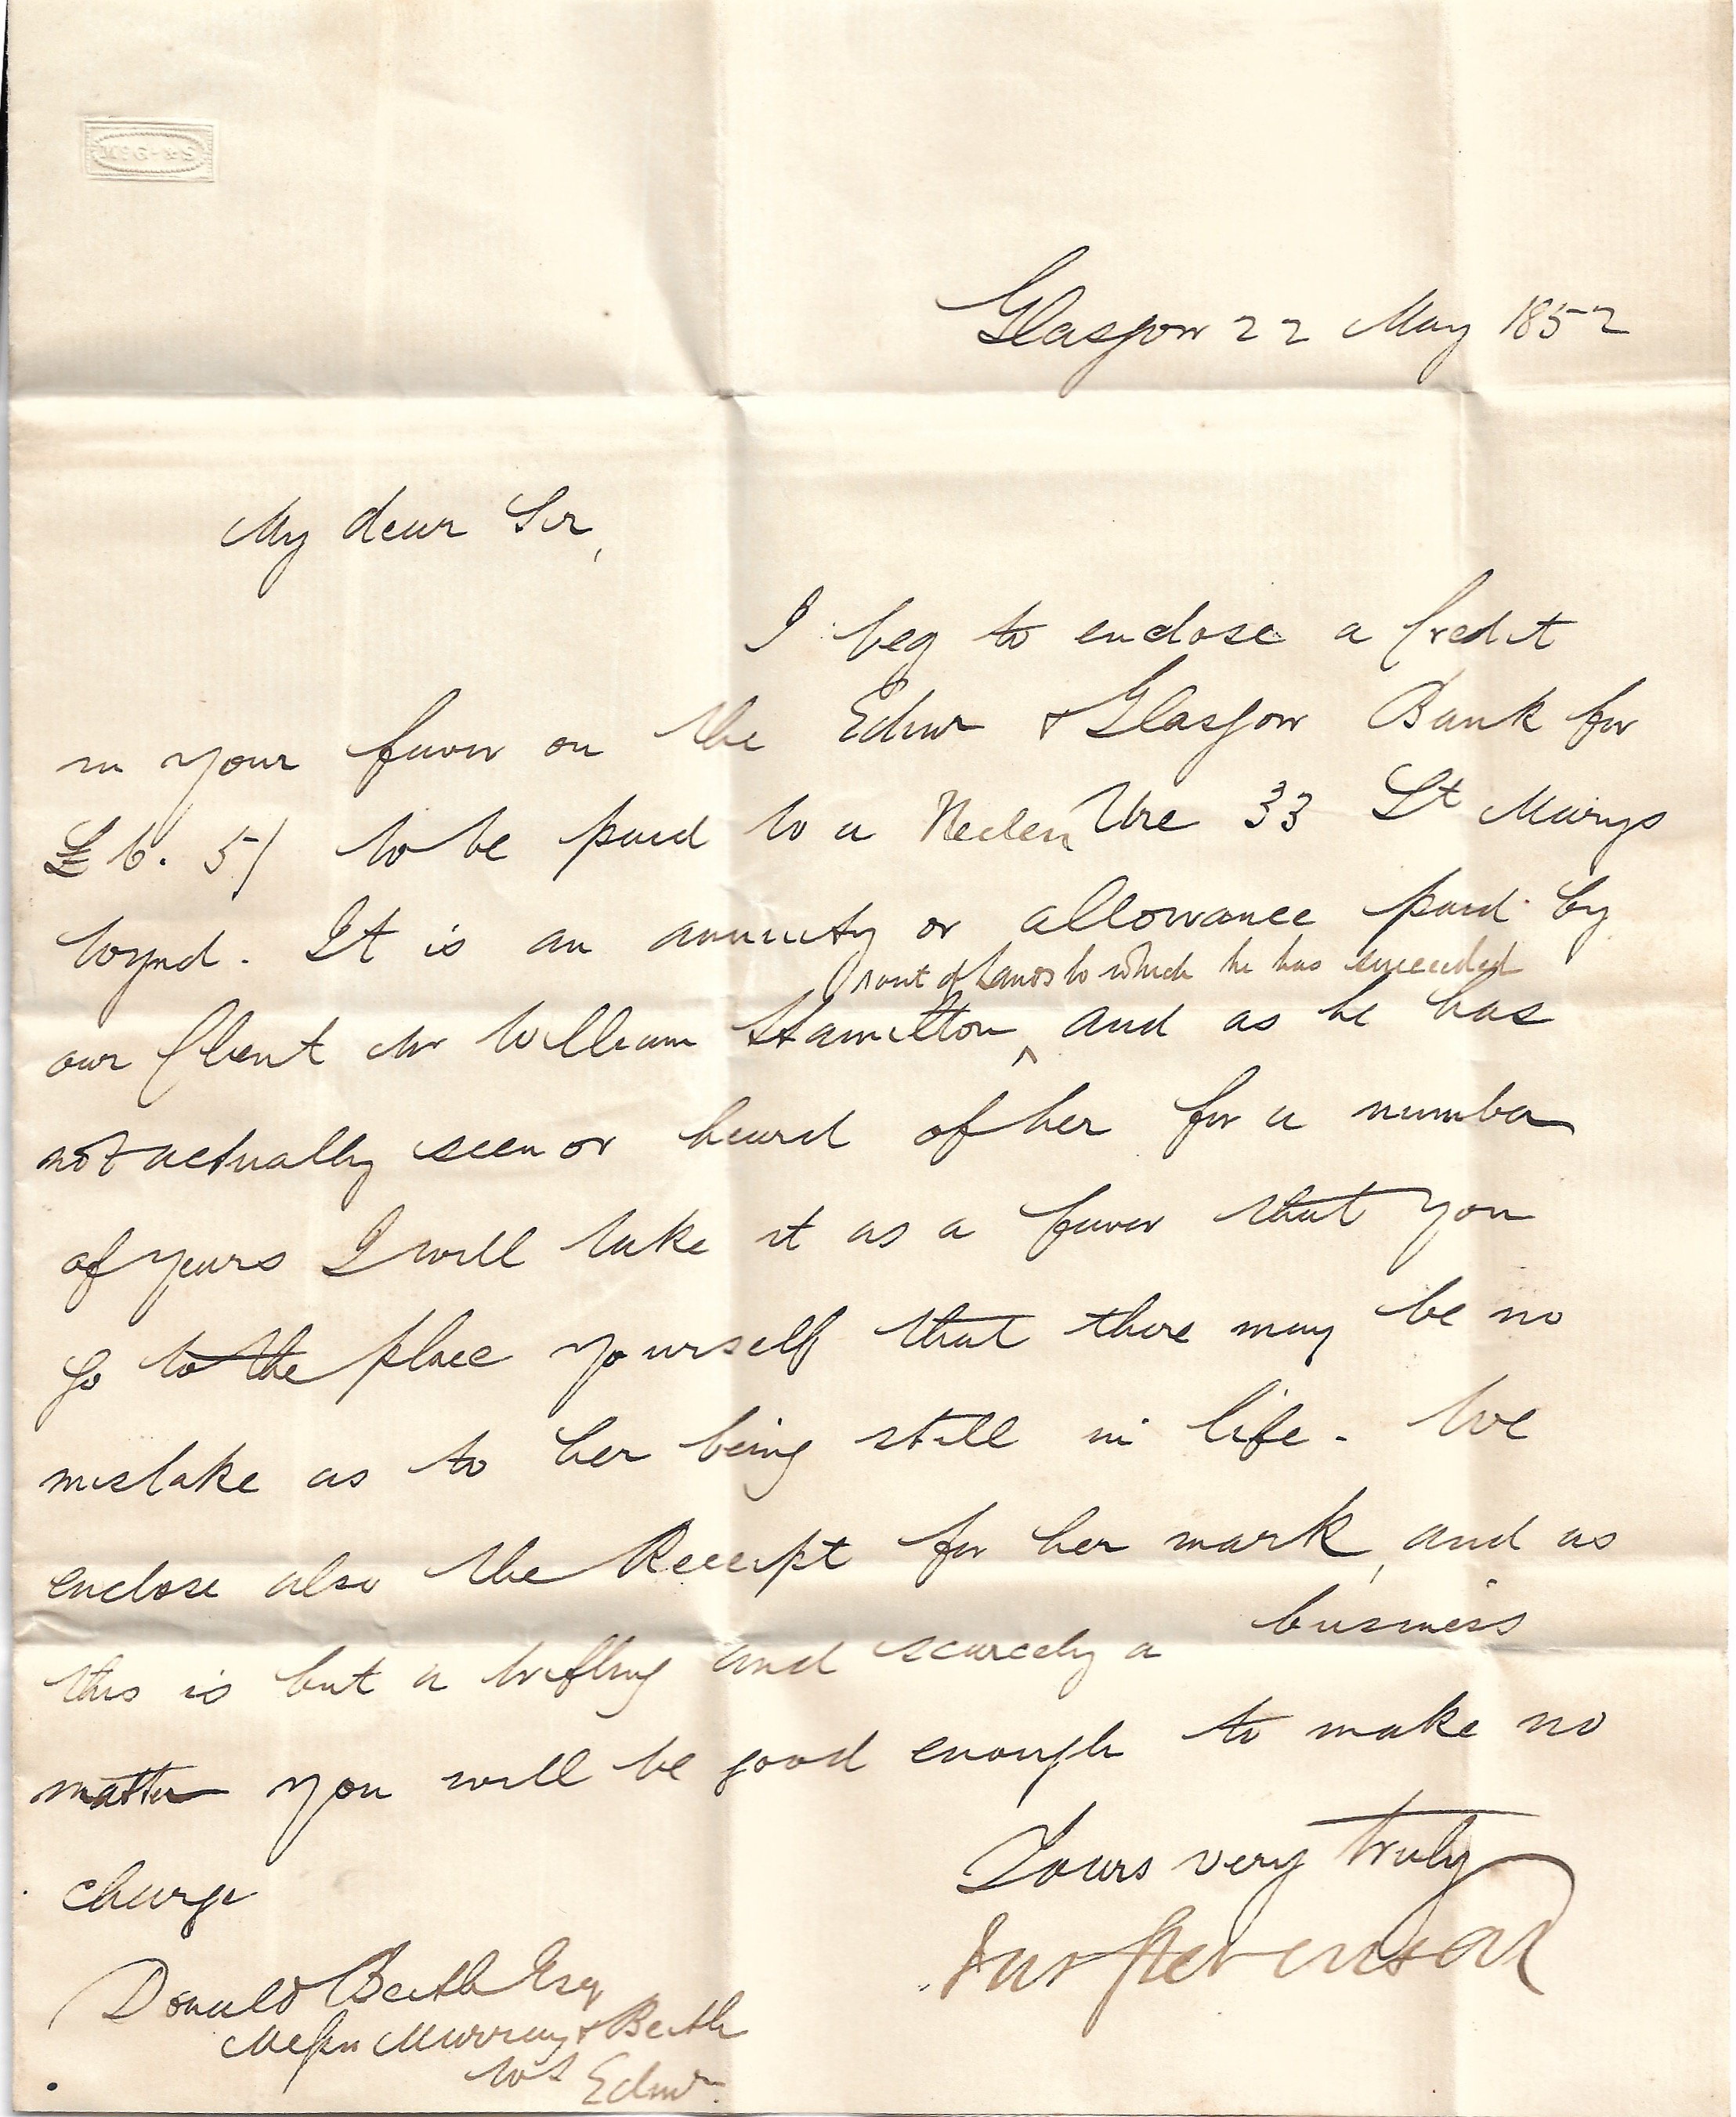 Glasgow 22 May 1852
My dear Sir,
I beg to enclose a Credit
in your favor on the Edinr & Glasgow Bank for
£6. 5/ to be paid to a Helen Ure 33 St Marys
Wynd. It is an annuity or allowance paid by
out of Lands to which he has succeeded
our Client Mr William Hamilton ^ and as he has
not actually seen or heard of her for a number
of years I will take it as a favor that you
go to the place yourself that there may be no
mistake as to her being still in life - We
enclose also the Receipt for her mark, and as
this is but a trifling and scarcely a business
matter you will be good enough to make no
charge
Yours very truly
Stevenson
Donald Beith Esq
Messrs Murray & Beith
WS Edinr.